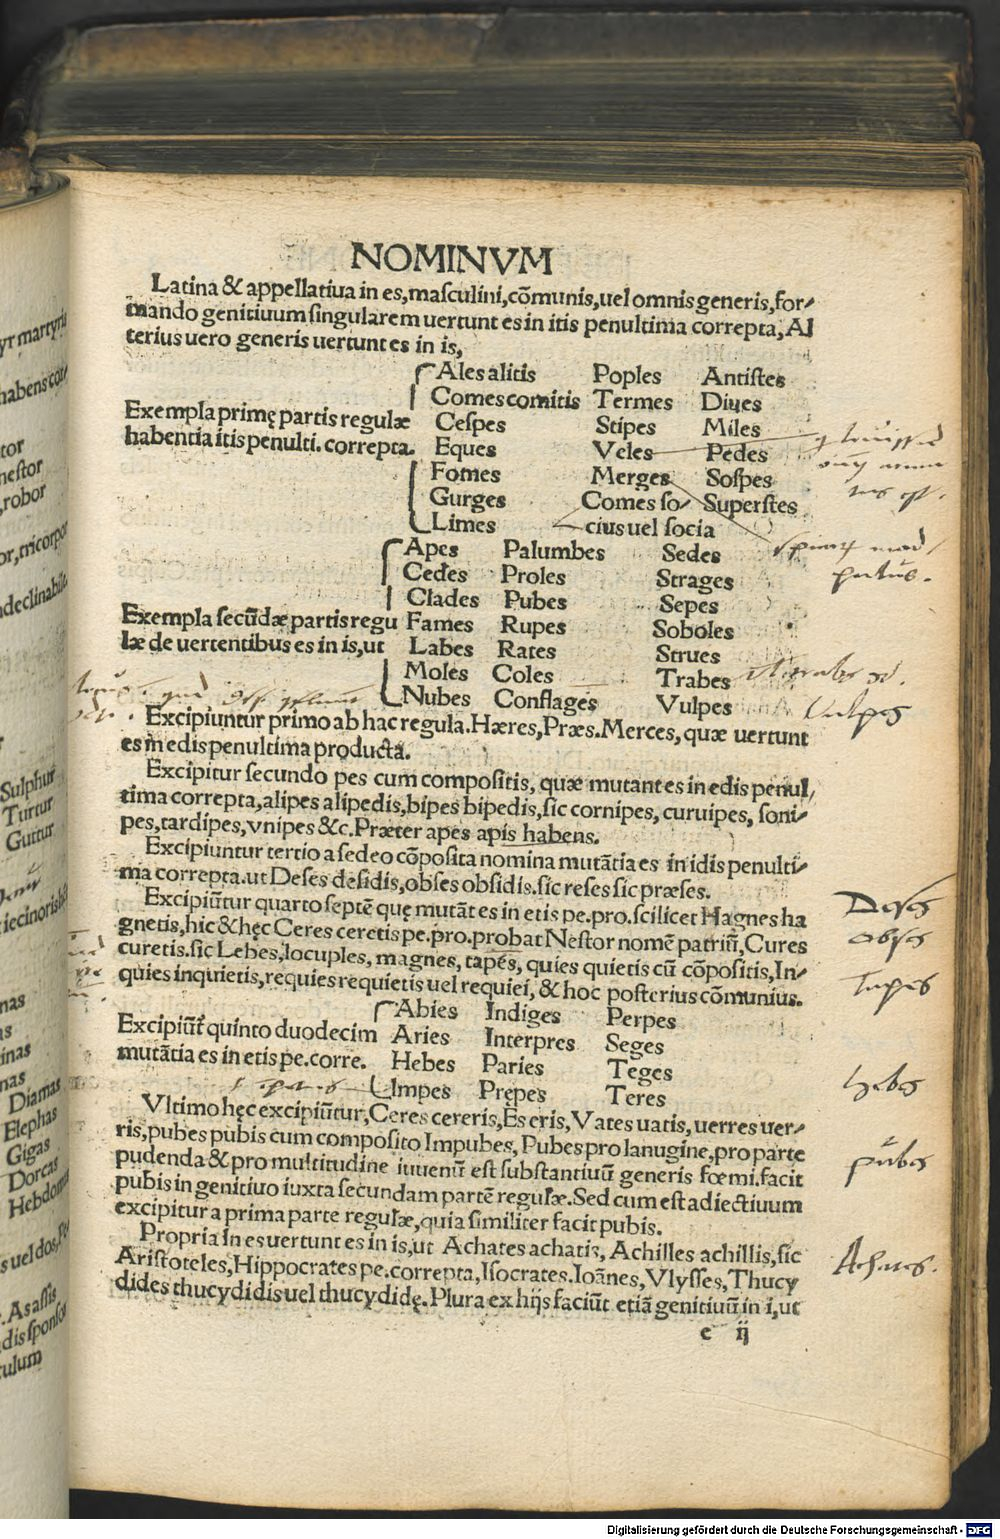 NOMINVM
Latina & appellatiua in es, masculini, cōmunis, uel omnis generis, for-
mando genitiuum singularem uertunt es in itis penultima correpta, Al
terius uero generis uertunt es in is,
Ales alitis Poples Antistes
Comes comitis Termes Diues
Exempla primę partis regulæ Cespes Stipes Miles
habentia itis penulti. correpta. Eques Veles Pedes
Fomes Merges Sospes
Gurges Comes so- Superstes
Limes cius uel socia
Apes Palumbes Sedes
Cedes Proles Strages
Clades Pubes Sepes
Exempla secūdæ partis regu Fames Rupes Soboles
læ de uertentibus es in is, ut Labes Rates Strues
Moles Coles Trabes
Nubes Conflages Vulpes
Vulpes
Excipiuntur primo ab hac regula. Hæres, Præs. Merces, quæ uertunt
es in edis penultima producta.
Excipitur secundo pes cum compositis, quæ mutant es in edis penul,
tima correpta, alipes alipedis, bipes bipedis, sic cornipes, curuipes, soni-
pes, tardipes, vnipes &c. Præter apes apis habens.
Excipiuntur tertio a sedeo cōposita nomina mutātia es in idis penulti-
ma correpta. ut Deses desidis, obses obsidis. sic reses sic præses.
Excipiūtur quarto septē quę mutāt es in etis pe. pro. scilicet Hagnes ha
gnetis, hic & hęc Ceres ceretis pe. pro. probat Nestor nomē patriū, Cures
curetis. sic Lebes, locuples, magnes, tapes, quies quietis cū cōpositis, In-
quies inquietis, requies requietis uel requiei, & hoc posterius cōmunius.
Deses
obses
Tapes
Abies Indiges Perpes
Excipiūt quinto duodecim Aries Interpres Seges
mutātia es in etis pe. corre. Hebes Paries Teges
Impes Prępes Teres
hebes
Vltimo hęc excipiūtur, Ceres cereris, Es eris, Vates uatis, uerres uer-
ris, pubes pubis cum composito Impubes, Pubes pro lanugine, pro parte
pudenda & pro multitudine iuuenū est substantiuū generis fœmi. facit
pubis in genitiuo iuxta secundam partē regulæ. Sed cum est adiectiuum
excipitur a prima parte regulæ, quia similiter facit pubis.
pubes
Propria in es uertunt es in is, ut Achates achatis, Achilles achillis, sic
Aristoteles, Hippocrates pe. correpta, Isocrates. Ioānes, Vlysses, Thucy
dides thucydidis uel thucydidę. Plura ex hijs faciūt etiā genitiuū in i, ut
e ij
yr martyris
habens
tor
nestor
, robor
or, tricorpor
Sulphur
Turtur
Guttur
Diamas
Elephas
Gigas
Dorcas
s uel dos,
. As assis
culum
Digitalisierung gefördert durch die Deutsche Forschungsgemeinschaft - DFG